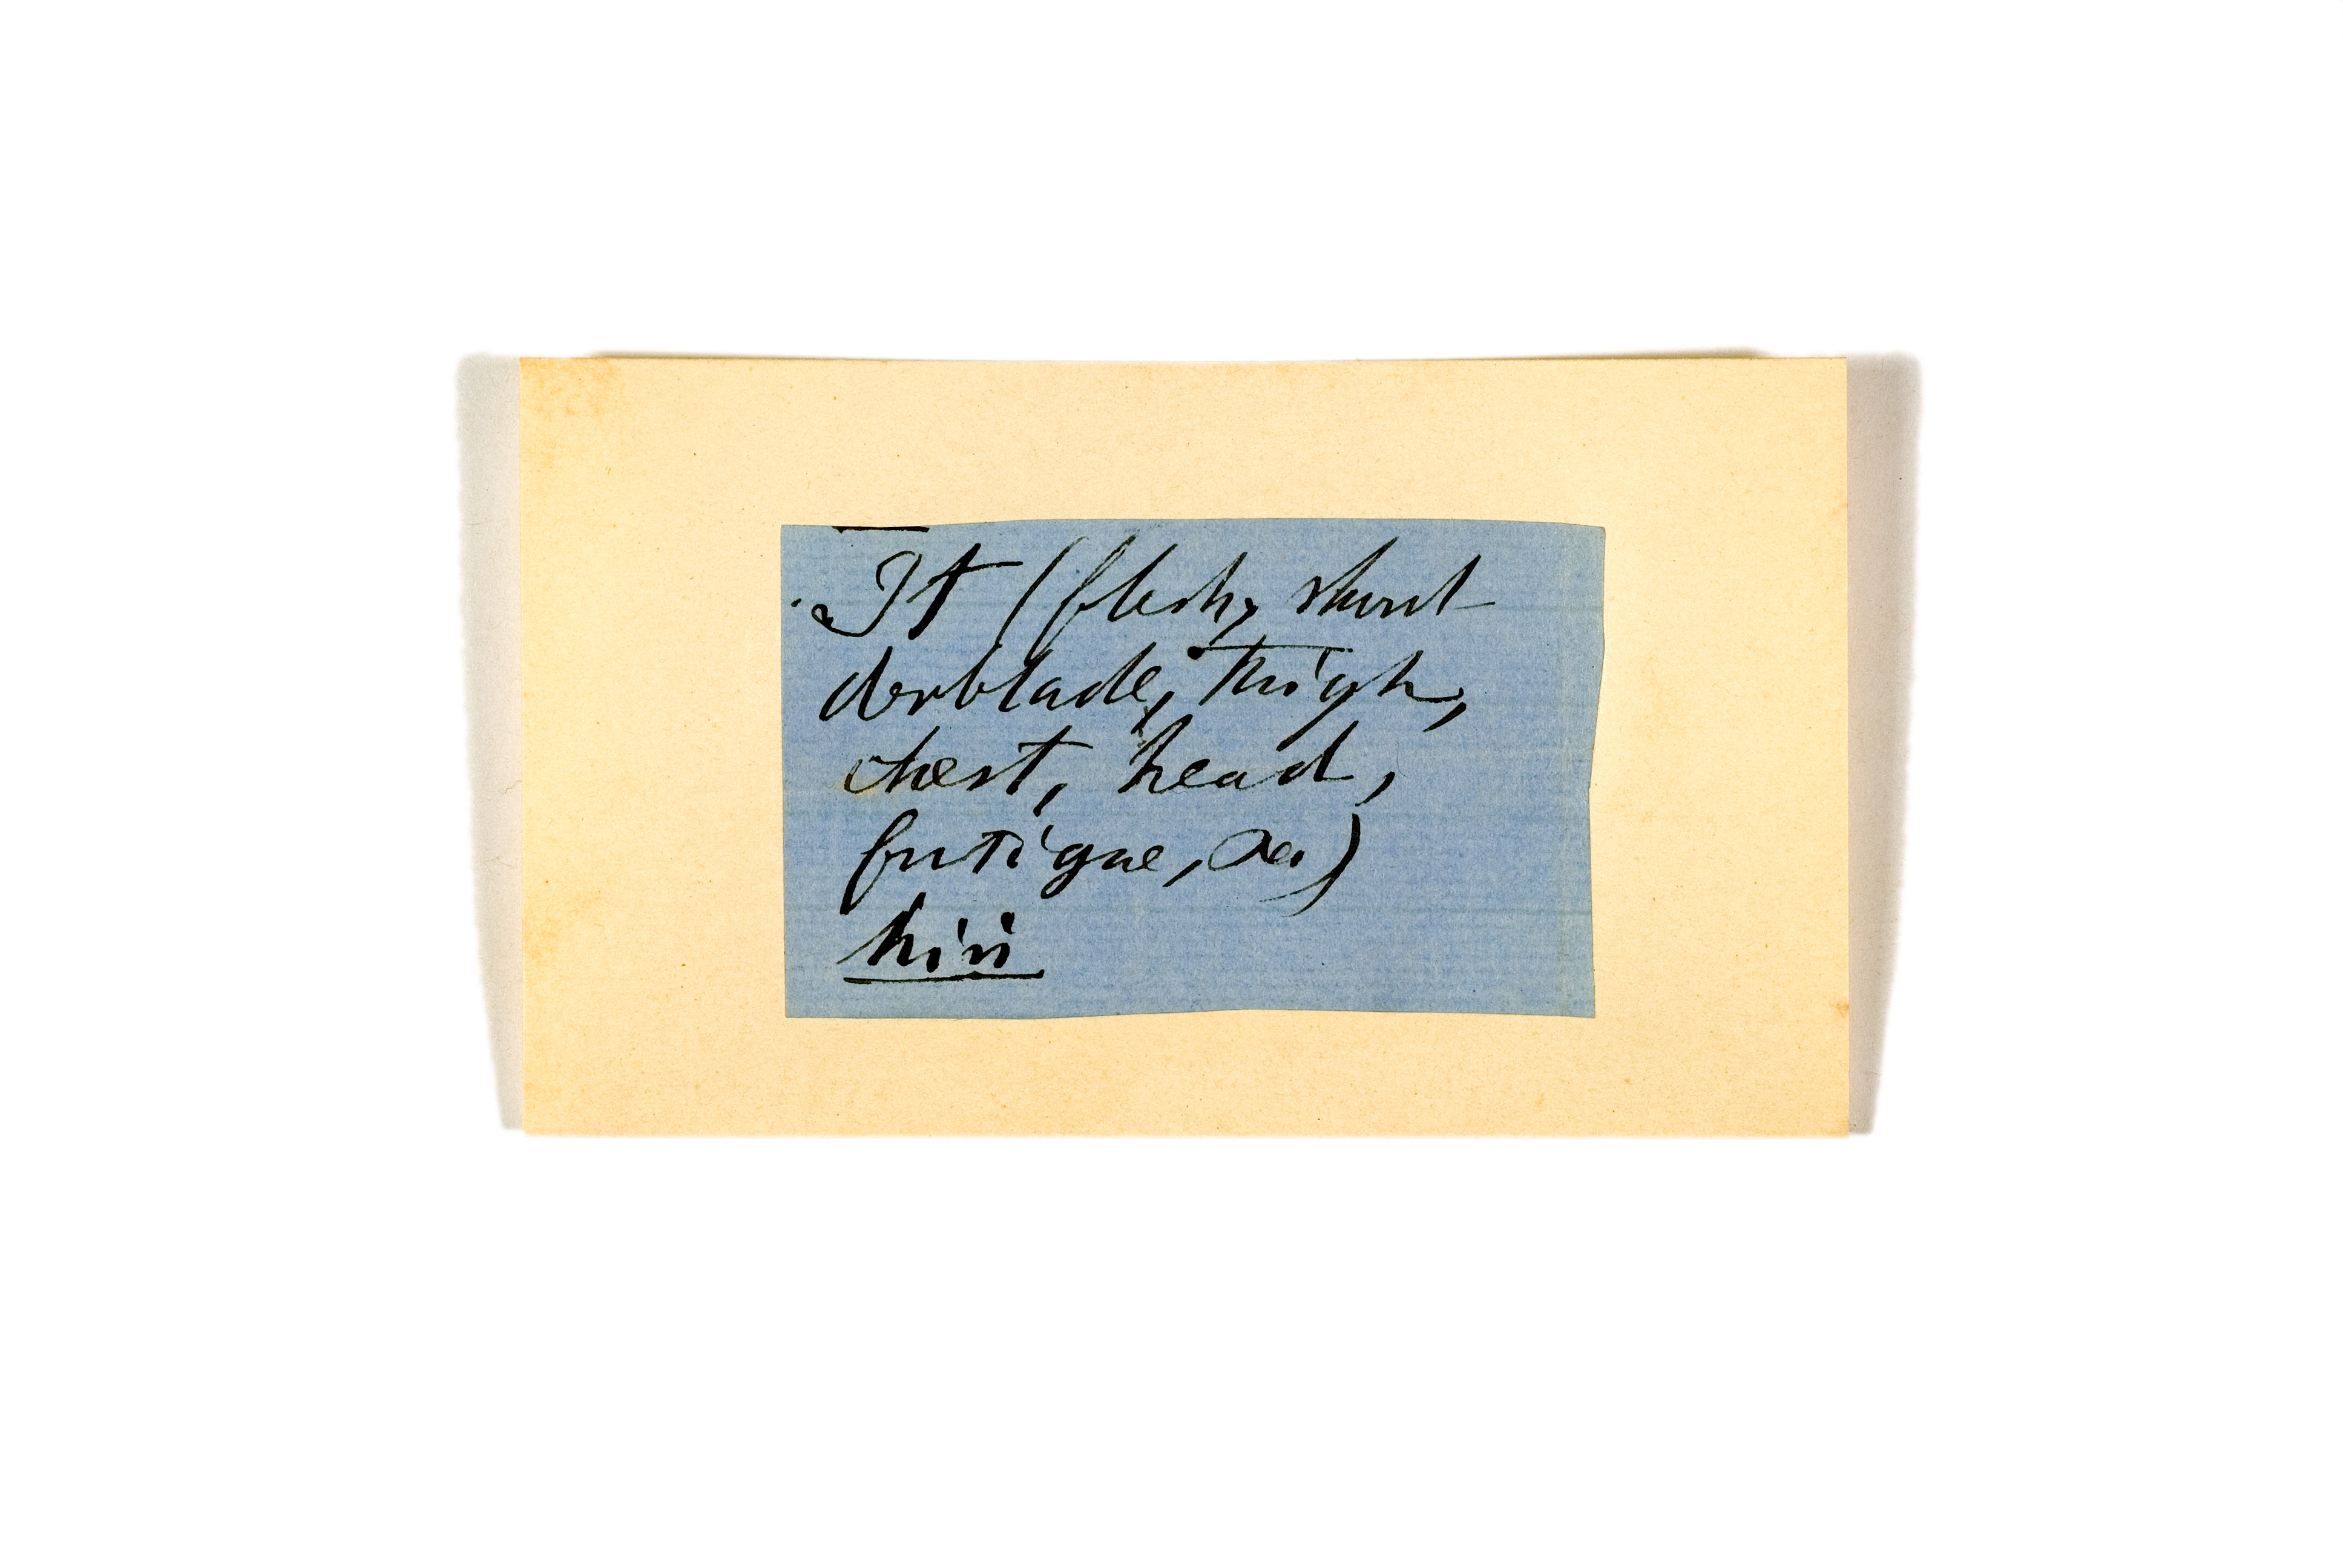 It (flesh, shoul-
derblade, thigh,
chest, head,
fatigue, &c)